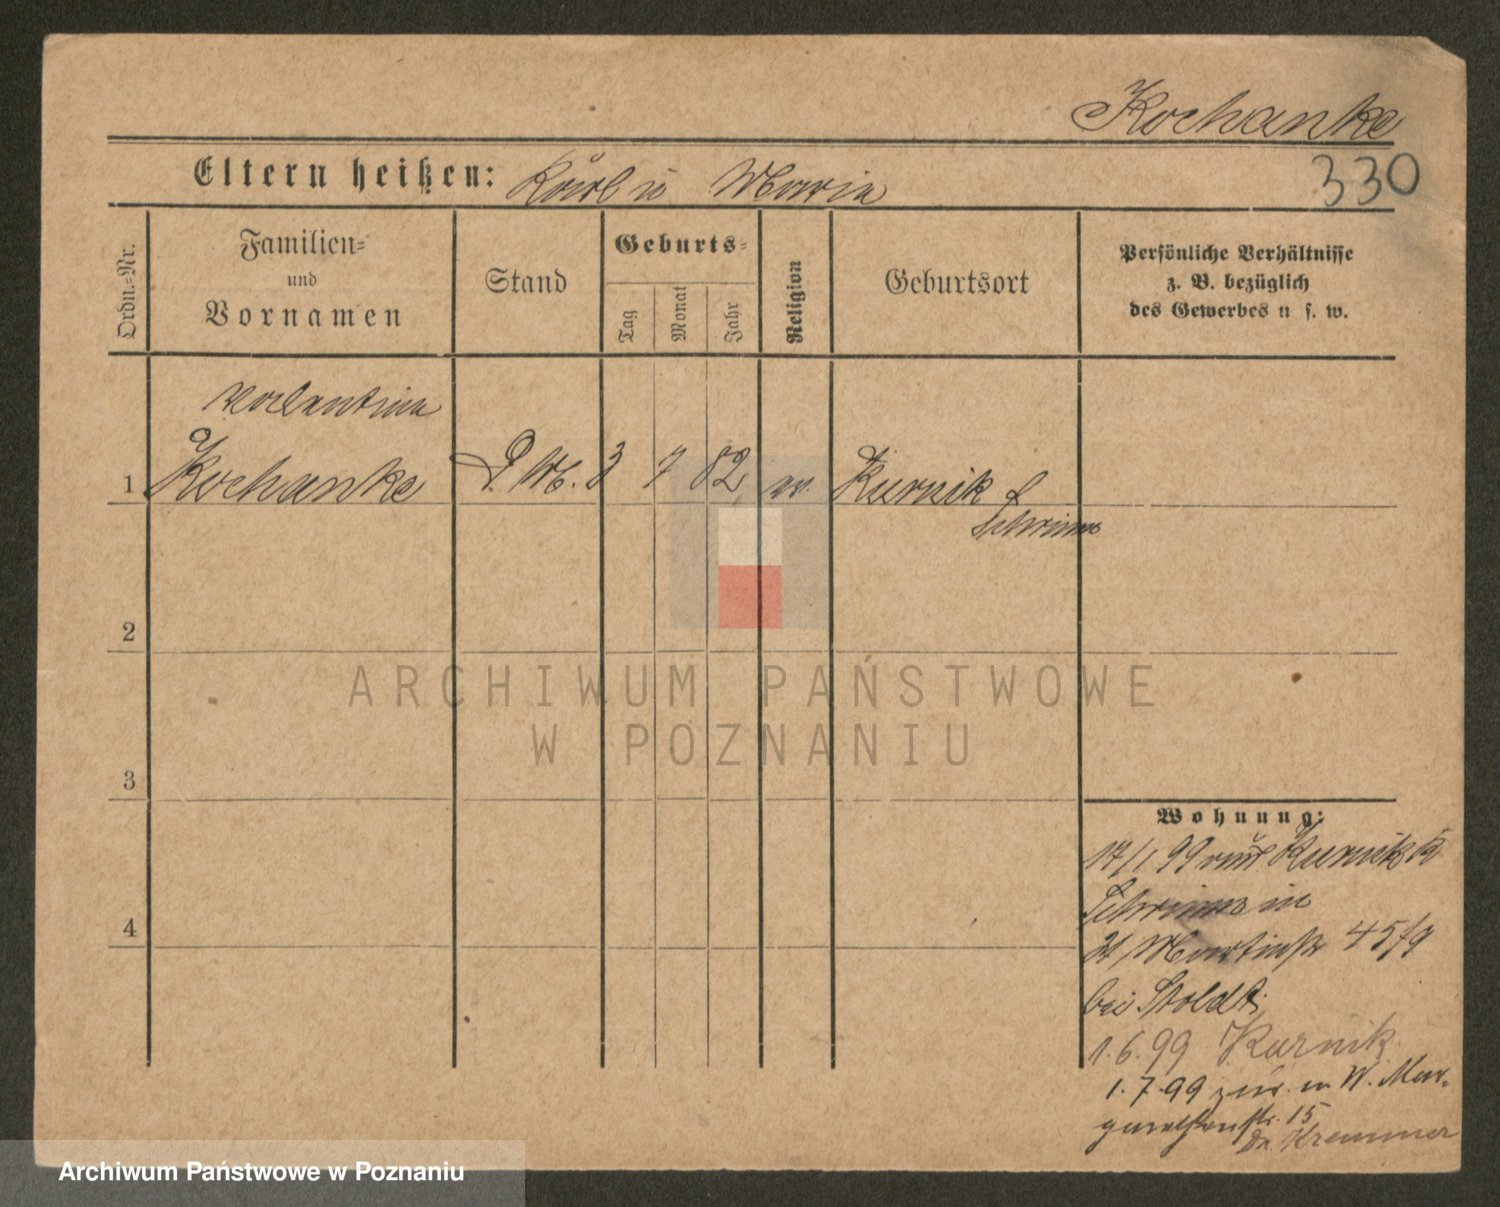 Kochanke
Eltern heißen: Karl u Maria
330
Ordn.=Nr.
Familien=
und
Vornamen
Stand
Geburts=
Tag
Monat
Jahr
Religion
Geburtsort
Persönliche Verhältnisse
z. B. bezüglich
des Gewerbes u s. w.
Valentina
1 Kochanke D. M. 3 7 82 ev. Kurnik
Schrimm
2
3
4
Wohnung:
17/1 99 aus Kurnik K
Schrimm in
St Martinstr 45/9
bei Stoldt
1.6.99 Kurnik
1.7.99 zur. W. Mar-
garethenstr. 15
Kremmer
ARCHIWUM PAŃSTWOWE
W POZNANIU
Archiwum Państwowe w Poznaniu